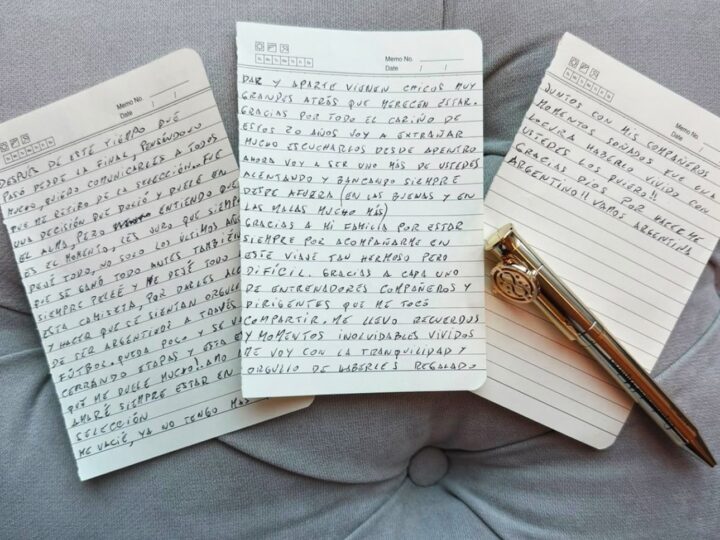 Memo No.
Date / /
DESPUES DE ESTE TIEMPO QUE
PASÓ DESDE LA FINAL, PENSÁNDOLO
MUCHO, QUIERO COMUNICARLES A TODOS
QUE ME RETIRO DE LA SELECCIÓN. FUE
UNA DECISIÓN QUE DOLIÓ Y DUELE EN
EL ALMA, PERO ENTIENDO QUE
ES EL MOMENTO, LES JURO QUE SIEMPRE
DEJÉ TODO, NO SOLO LOS ÚLTIMOS AÑOS
QUE SE GANÓ TODO ANTES TAMBIÉN
SIEMPRE PELEÉ Y ME DEJÉ TODO
ESTA CAMISETA, POR DARLES
Y HACER QUE SE SIENTAN
DE SER ARGENTINOS A TRAVÉS
FÚTBOL. QUEDA POCO Y SE
CERRANDO ETAPAS Y ESTA ES
QUE ME DUELE MUCHO!. AMO
AMARÉ SIEMPRE ESTAR EN
SELECCIÓN
ME VACIÉ, YA NO TENGO MÁS
Memo No.
Date / /
DAR Y APARTE VIENEN CHICOS MUY
GRANDES ATRÁS QUE MERECEN ESTAR.
GRACIAS POR TODO EL CARIÑO DE
ESTOS 20 AÑOS VOY A EXTRAÑAR
MUCHO ESCUCHARLOS DESDE ADENTRO
AHORA VOY A SER UNO MÁS DE USTEDES
ALENTANDO Y BANCANDO SIEMPRE
DESDE AFUERA (EN LAS BUENAS Y EN
LAS MALAS MUCHO MÁS)
GRACIAS A MI FAMILIA POR ESTAR
SIEMPRE POR ACOMPAÑARME EN
ESTE VIAJE TAN HERMOSO PERO
DIFÍCIL. GRACIAS A CADA UNO
DE ENTRENADORES COMPAÑEROS Y
DIRIGENTES QUE ME TOCÓ
COMPARTIR. ME LLEVO RECUERDOS
Y MOMENTOS INOLVIDABLES VIVIDOS
ME VOY CON LA TRANQUILIDAD Y
ORGULLO DE HABERLES REGALADO
Memo No.
Date / /
JUNTOS CON MIS COMPAÑEROS
MOMENTOS SOÑADOS FUE UNA
LOCURA HABERLO VIVIDO CON
USTEDES LOS QUIERO!!
GRACIAS DIOS POR HACERME
ARGENTINO!! VAMOS ARGENTINA